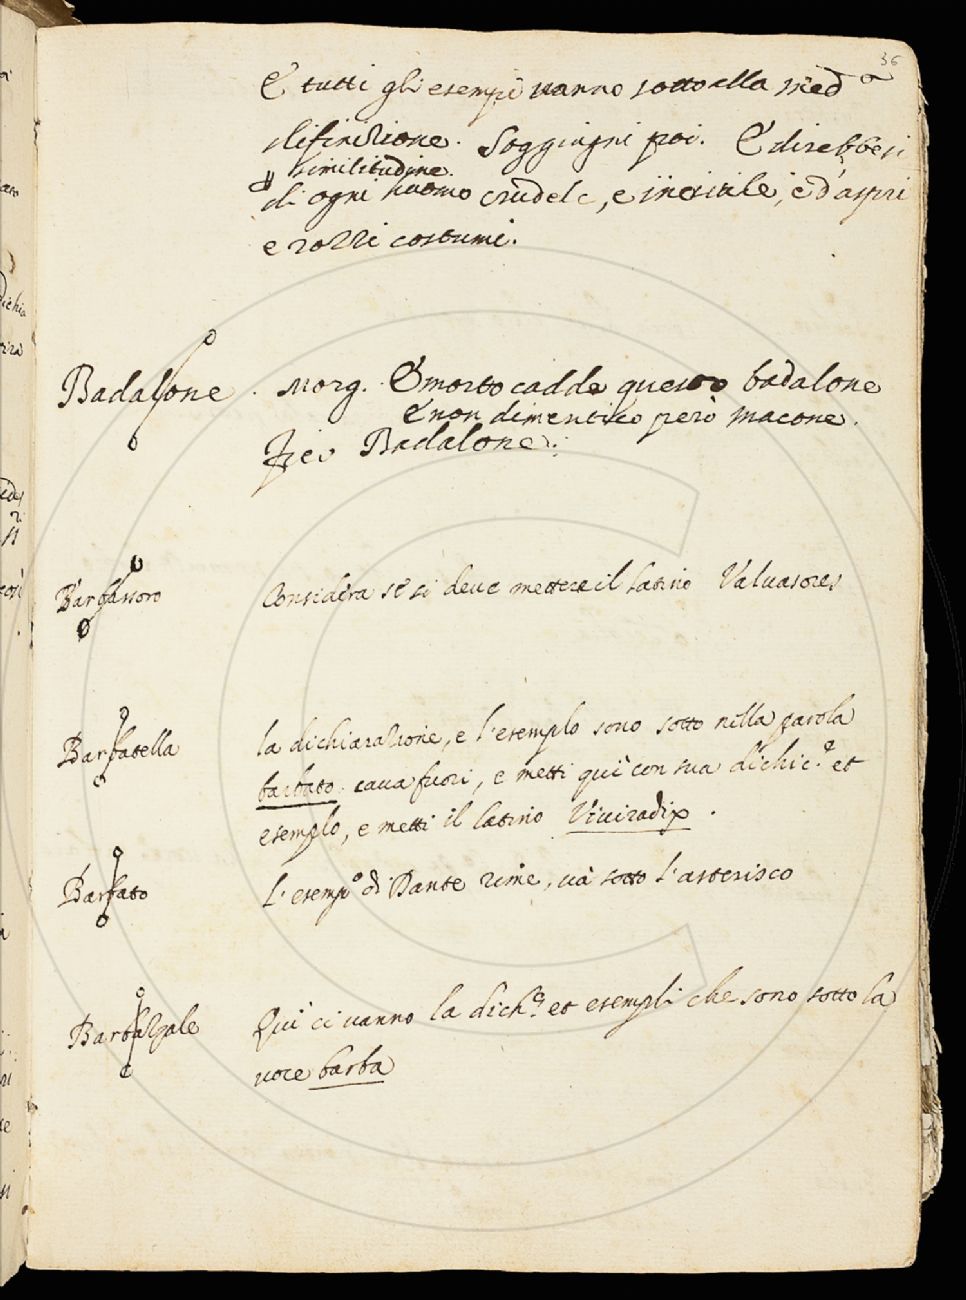 36
E tutti gli esempi vanno sotto alla med.a
difinizione. Soggiugni poi. E direbbesi
p similitudine.
di ogni huomo crudele, e incivile, e d'aspri
e rozzi costumi.
Badalone. Morg. E morto cadde questo badalone
E non dimentico però Macone.
Badalone.
Barbassoro Considera se si deve mettere il latino Valvasores
Barbatella la dichiarazione, e l'esempio sono sotto nella parola
barbato. cava fuori, e metti qui con sua dichic.e et
esemplo, e metti il latino Viviradix.
Barbato L'esemp.o di Dante rime, và sotto l'asterisco
Barbazzale Qui ci vanno la dich.e et esempli che sono sotto la
voce barba